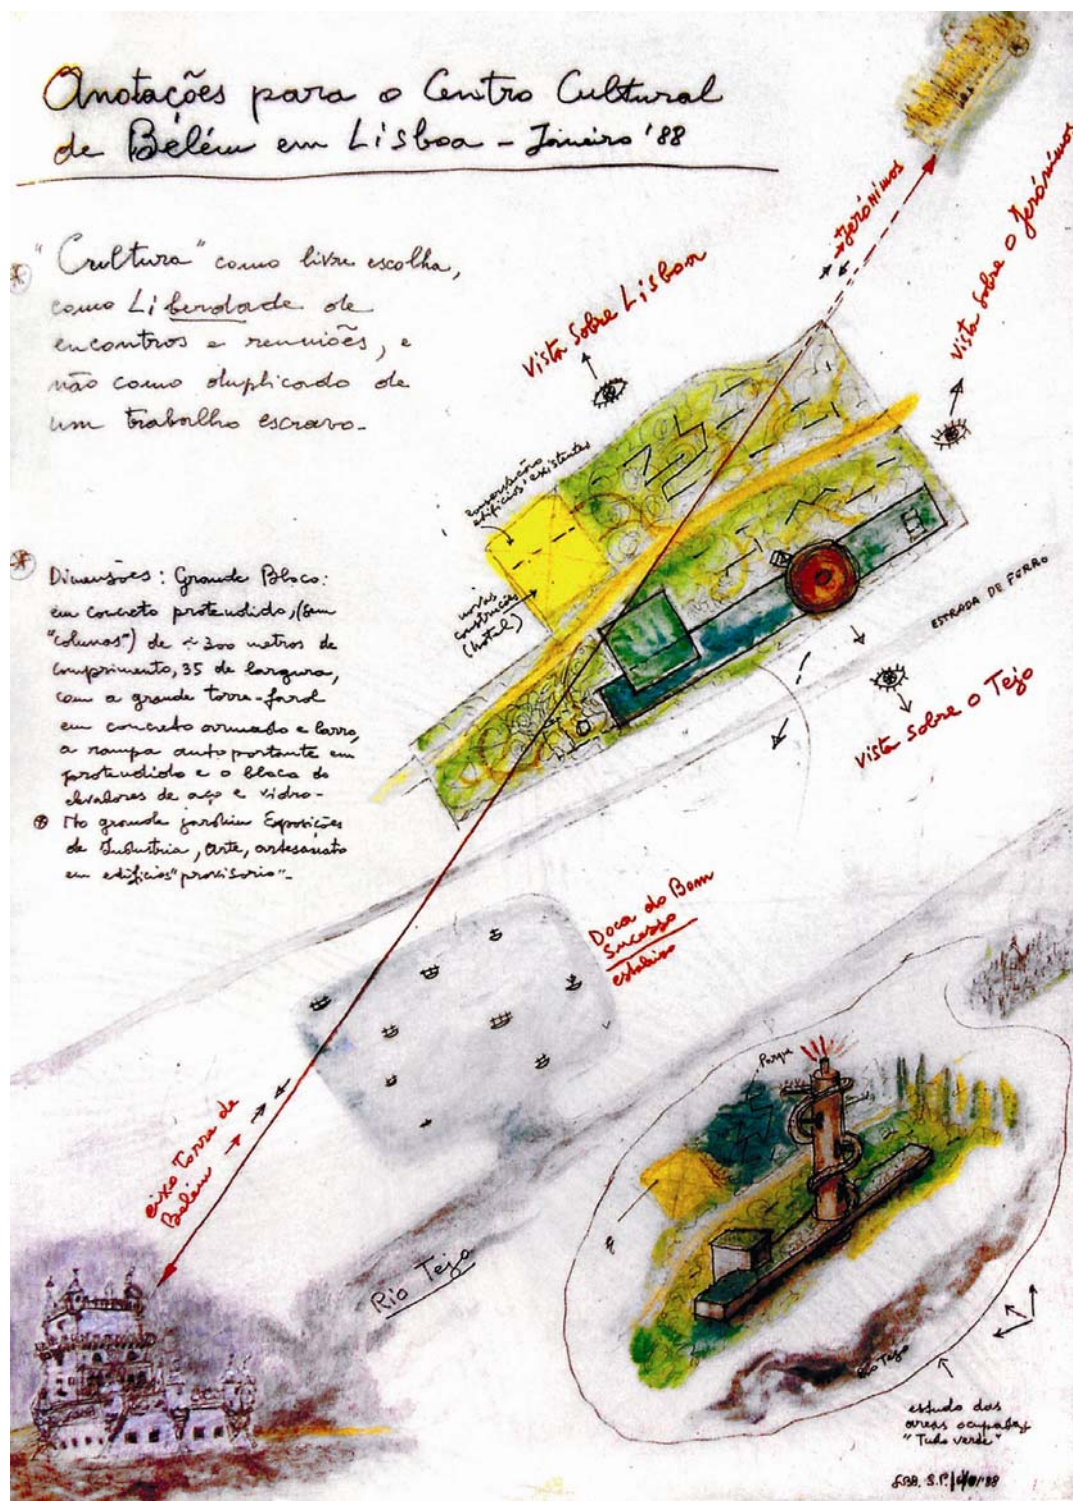 Anotações para o Centro Cultural
de Bélém em Lisboa - Janeiro '88
"Cultura" como livre escolha,
como Liberdade de
encontros e reuniões, e
não como duplicado de
um trabalho escravo-
Dimensões: Grande Bloco:
em concreto protendido, (sem
"colunas") de ~ 300 metros de
comprimento, 35 de largura,
com a grande torre-farol
em concreto armado e barro,
a rampa autoportante em
protendido e o bloco de
elevadores de aço e vidro-
No grande jardim Exposições
de Industria, arte, artesanato
em edificios "provisorio"-
Jerónimos
Vista sobre o Jerónimos
Vista sobre Lisboa
conservação
edificios existentes
novas
construções
(hotel)
ESTRADA DE FERRO
Vista sobre o Tejo
Doca do Bom
Sucesso
eixo Torre de
Belém
Rio Tejo
Parque
Rio Tejo
estudo das
areas ocupadas
"Tudo verde"
LBB. S.P.